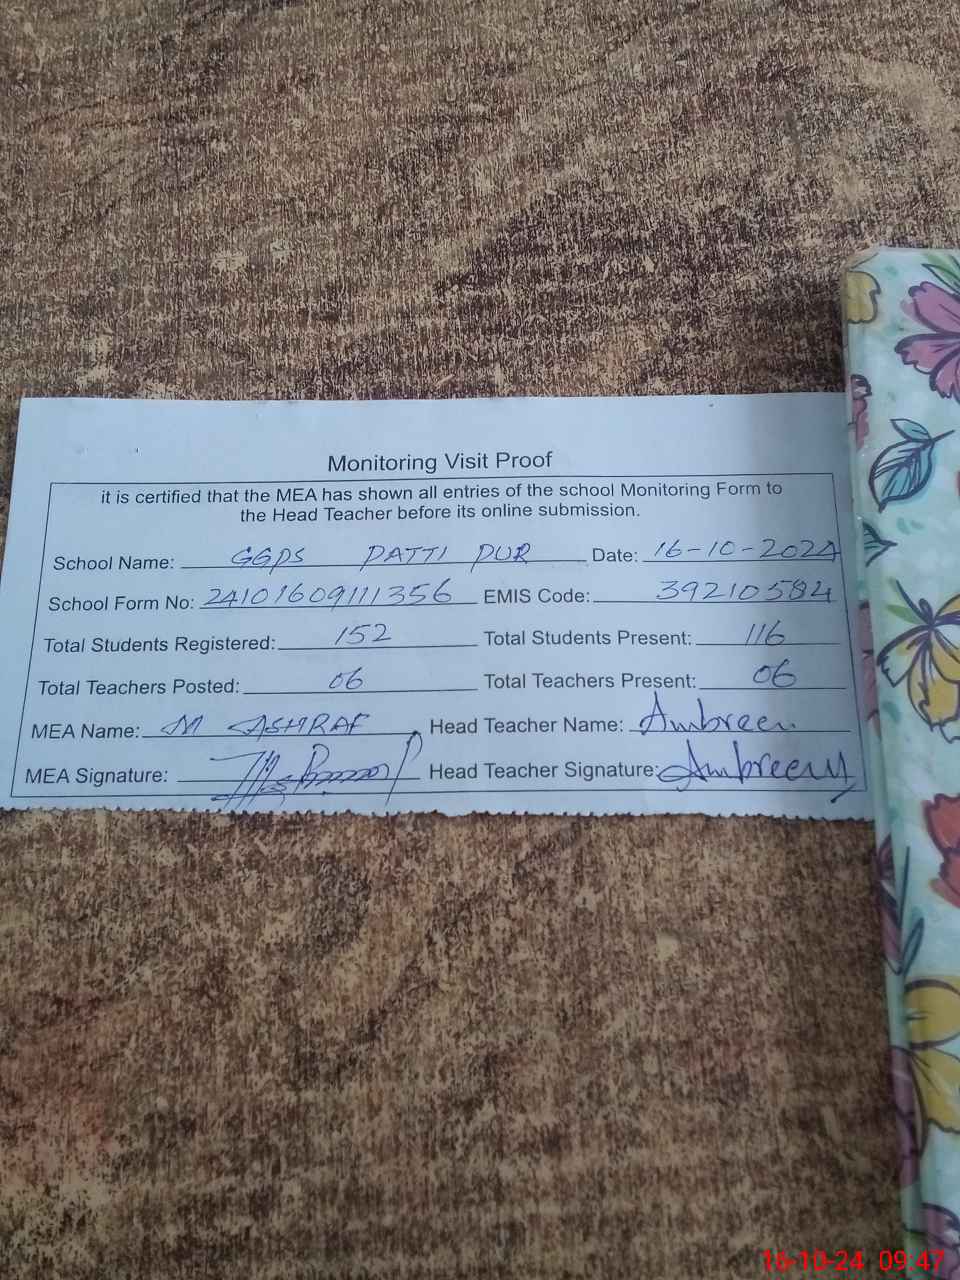 Monitoring Visit Proof
it is certified that the MEA has shown all entries of the school Monitoring Form to
the Head Teacher before its online submission.
School Name: GGPS PATTI PUR Date: 16-10-2024
School Form No: 24101609111356 EMIS Code: 39210584
Total Students Registered: 152 Total Students Present: 116
Total Teachers Posted: 06 Total Teachers Present: 06
MEA Name: M ASHRAF Head Teacher Name: Ambreen
MEA Signature: Head Teacher Signature: Ambreen
16-10-24 09:47